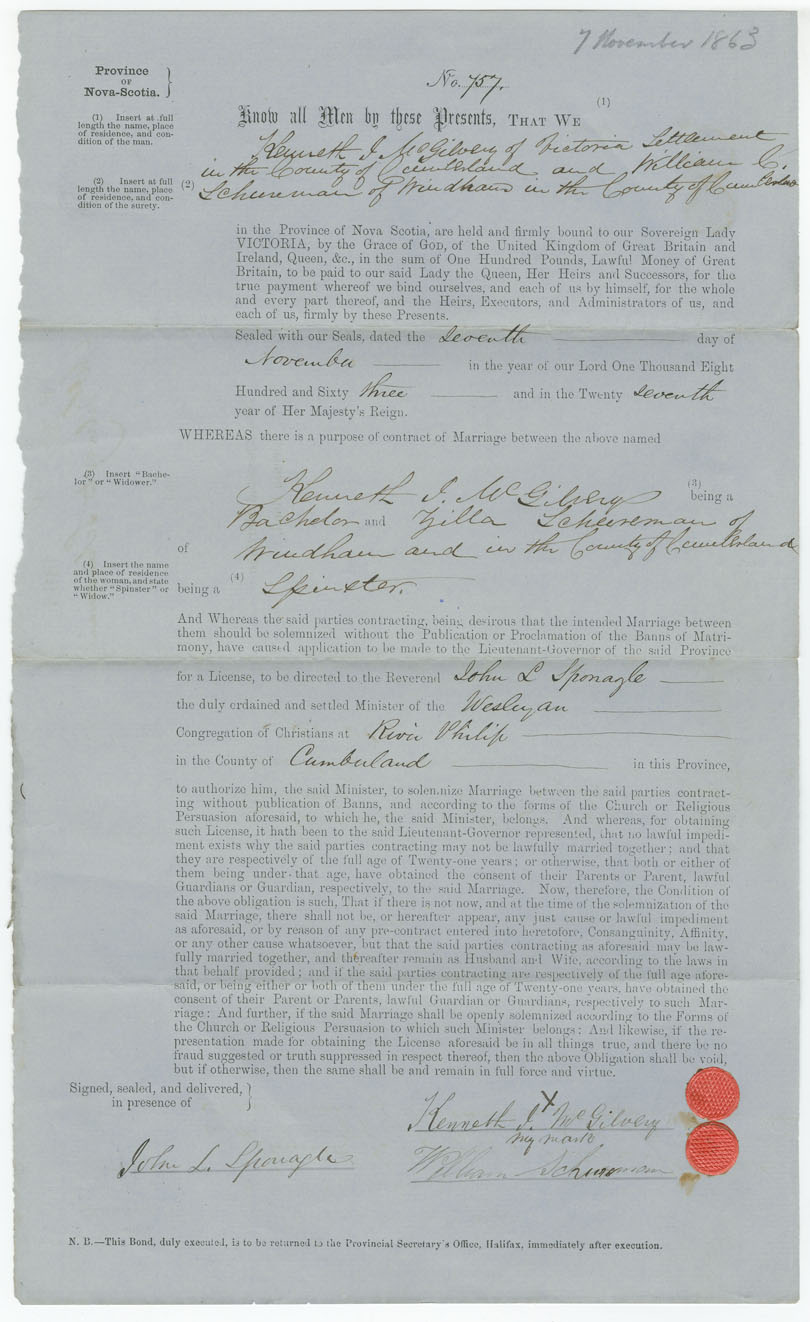 7 November 1863
Province
OF
Nova-Scotia.
No. 757.
(1) Insert at full
length the name, place
of residence, and con-
dition of the man.
Know all Men by these Presents, THAT WE (1)
Kenneth J. McGilvery of Victoria Settlement
in the County of Cumberland and William C.
(2) Insert at full
length the name, place
of residence, and con-
dition of the surety.
(2) Schureman of Windham in the County of Cumberland
in the Province of Nova Scotia, are held and firmly bound to our Sovereign Lady
VICTORIA, by the Grace of GOD, of the United Kingdom of Great Britain and
Ireland, Queen, &c., in the sum of One Hundred Pounds, Lawful Money of Great
Britain, to be paid to our said Lady the Queen, Her Heirs and Successors, for the
true payment whereof we bind ourselves, and each of us by himself, for the whole
and every part thereof, and the Heirs, Executors, and Administrators of us, and
each of us, firmly by these Presents.
Sealed with our Seals, dated the Seventh day of
November in the year of our Lord One Thousand Eight
Hundred and Sixty three and in the Twenty Seventh
year of Her Majesty's Reign.
WHEREAS there is a purpose of contract of Marriage between the above named
(3) Insert "Bache-
lor" or "Widower."
Kenneth J. McGilvery (3) being a
Bachelor and Zilla Schureman of
of Windham and in the County of Cumberland
(4) Insert the name
and place of residence
of the woman, and state
whether "Spinster" or
"Widow."
being a (4) Spinster.
And Whereas the said parties contracting, being desirous that the intended Marriage between
them should be solemnized without the Publication or Proclamation of the Banns of Matri-
mony, have caused application to be made to the Lieutenant-Governor of the said Province
for a License, to be directed to the Reverend John L Sponagle
the duly ordained and settled Minister of the Wesleyan
Congregation of Christians at River Philip
in the County of Cumberland in this Province,
to authorize him, the said Minister, to solemnize Marriage between the said parties contract-
ing without publication of Banns, and according to the forms of the Church or Religious
Persuasion aforesaid, to which he, the said Minister, belongs. And whereas, for obtaining
such License, it hath been to the said Lieutenant-Governor represented, that no lawful impedi-
ment exists why the said parties contracting may not be lawfully married together; and that
they are respectively of the full age of Twenty-one years; or otherwise, that both or either of
them being under that age, have obtained the consent of their Parents or Parent, lawful
Guardians or Guardian, respectively, to the said Marriage. Now, therefore, the Condition of
the above obligation is such, That if there is not now, and at the time of the solemnization of the
said Marriage, there shall not be, or hereafter appear, any just cause or lawful impediment
as aforesaid, or by reason of any pre-contract entered into heretofore, Consanguinity, Affinity,
or any other cause whatsoever, but that the said parties contracting as aforesaid may be law-
fully married together, and thereafter remain as Husband and Wife, according to the laws in
that behalf provided; and if the said parties contracting are respectively of the full age afore-
said, or being either or both of them under the full age of Twenty-one years, have obtained the
consent of their Parent or Parents, lawful Guardian or Guardians, respectively to such Mar-
riage: And further, if the said Marriage shall be openly solemnized according to the Forms of
the Church or Religious Persuasion to which such Minister belongs: And likewise, if the re-
presentation made for obtaining the License aforesaid be in all things true, and there be no
fraud suggested or truth suppressed in respect thereof, then the above Obligation shall be void,
but if otherwise, then the same shall be and remain in full force and virtue.
Signed, sealed, and delivered,
in presence of
X
Kenneth J. McGilvery
my mark
John L. Sponagle
William Schureman
N. B.—This Bond, duly executed, is to be returned to the Provincial Secretary's Office, Halifax, immediately after execution.